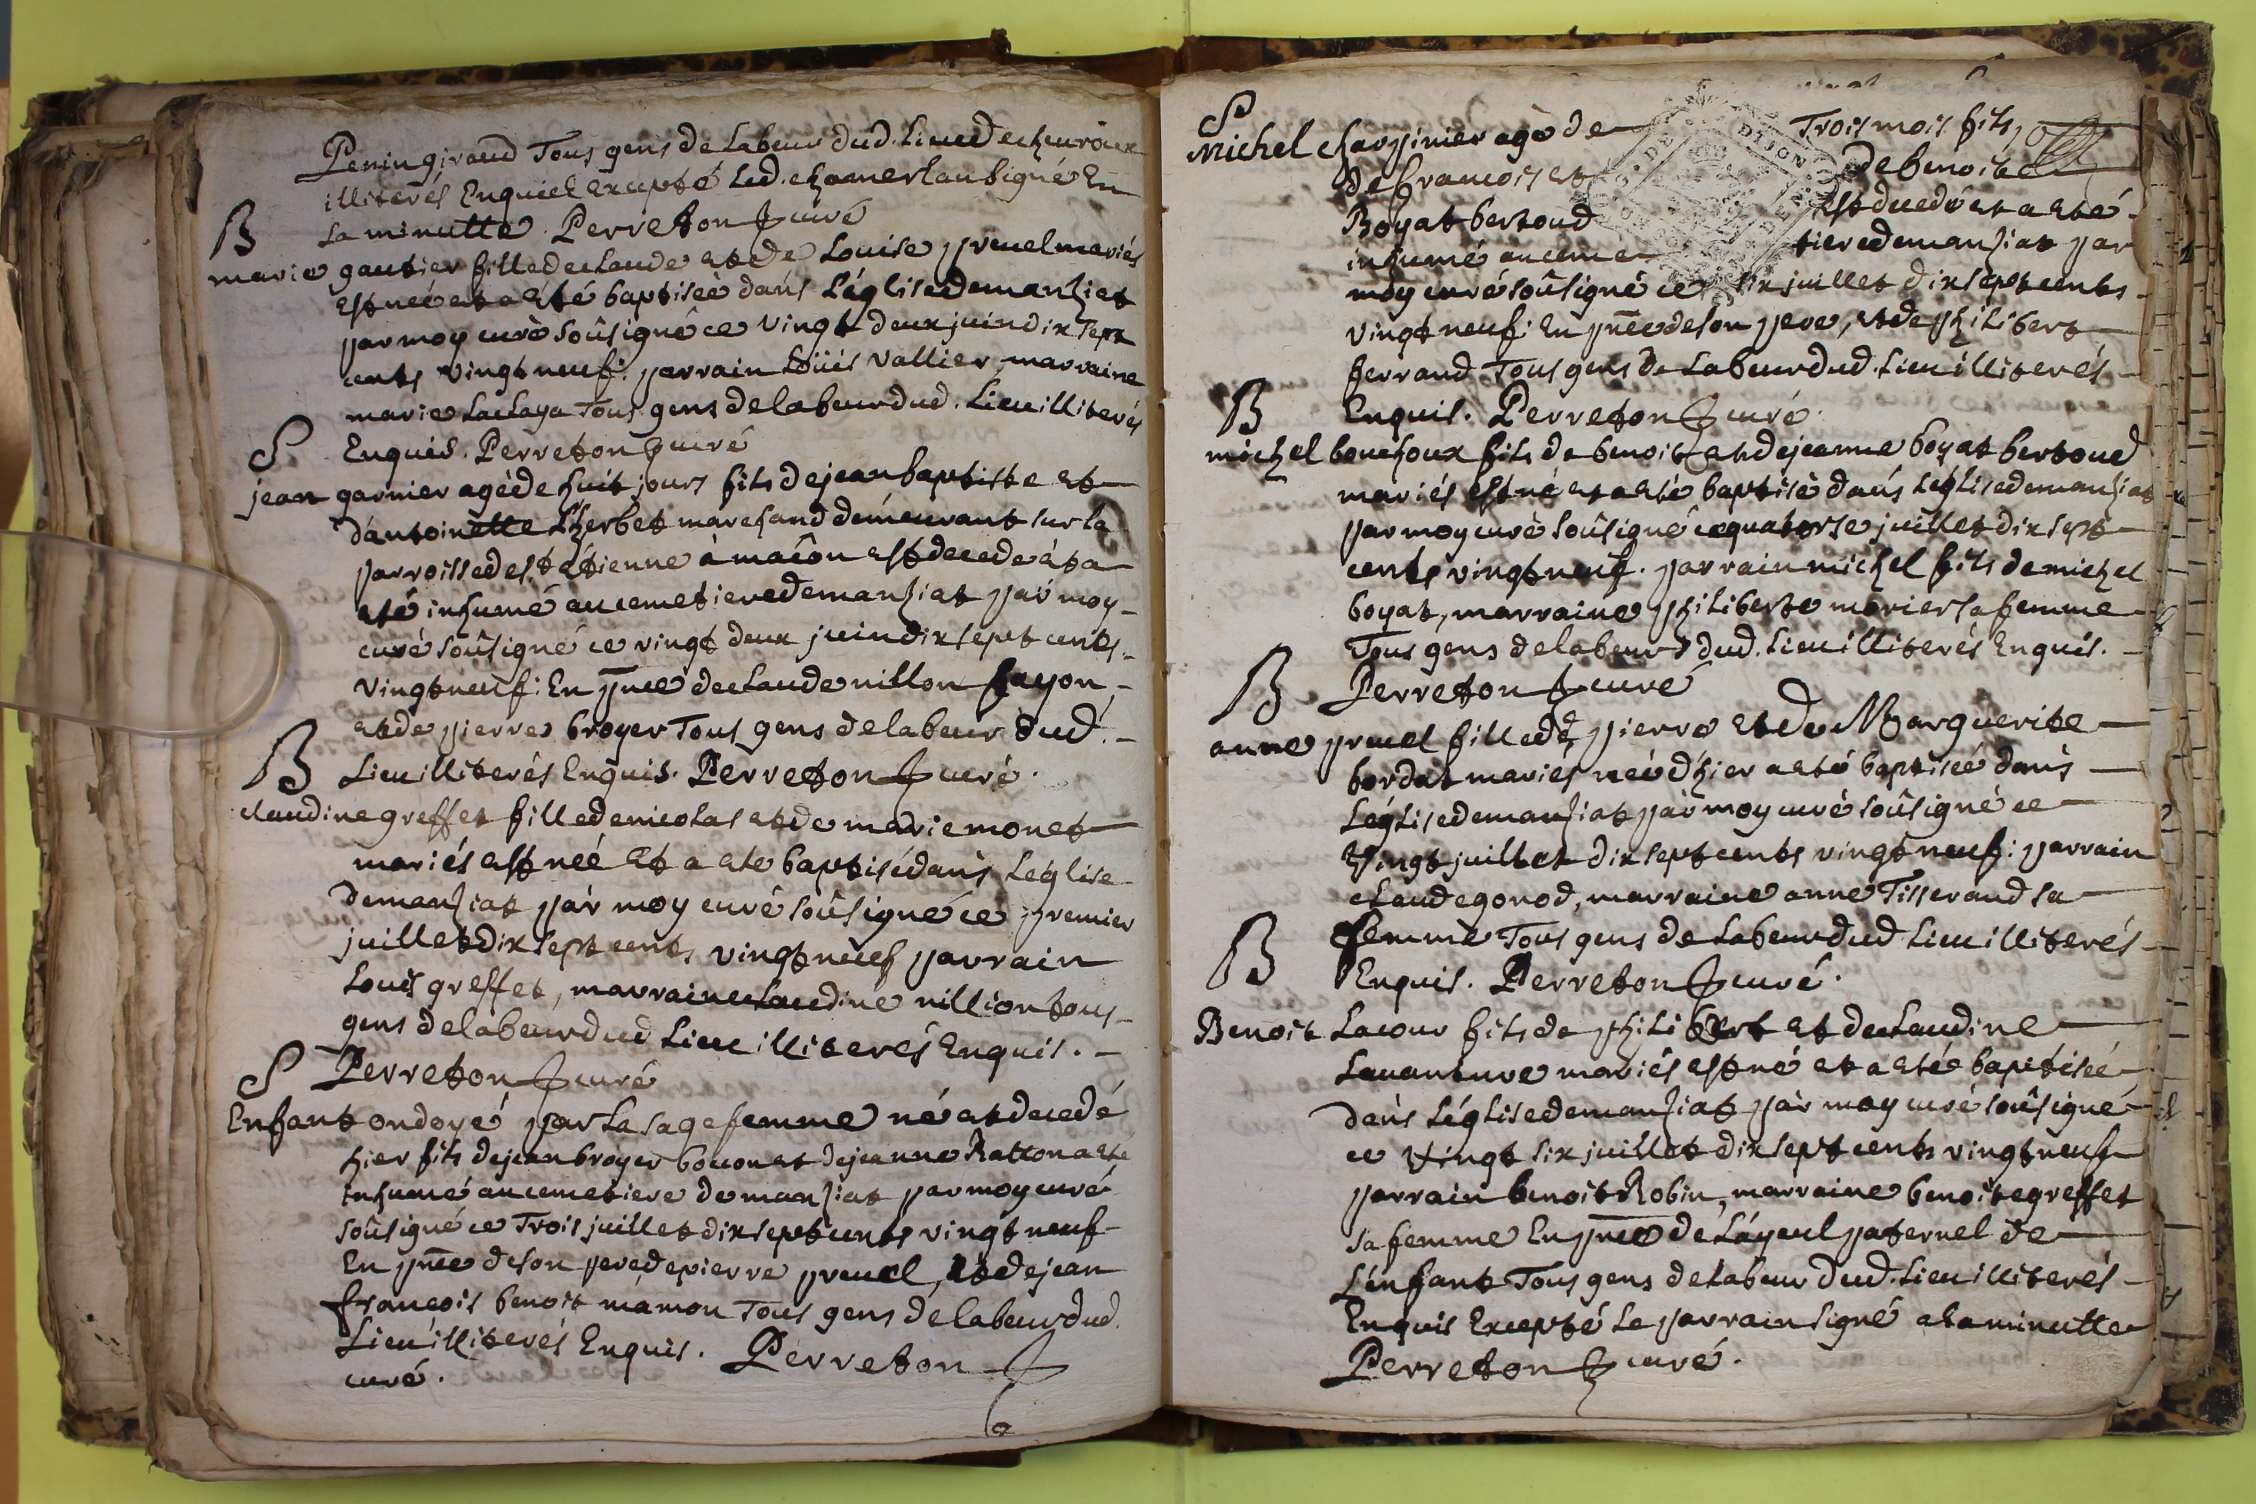 Penin giraud Tous gens de Labeur dud. Lieu de cheuroux
illiterés Enquiel Excepté Led. chamerlan signé En
la minutte Perreton curé
B
marie gautier fille de claude et de Louise pruel mariés
est neé et a eté baptiseé dans L'église de manziat
par moy curé soûsigné ce vingt deux juin dix sept
cents vingt neuf: parrain Loüis vallier, marraine
marie Laclaya Tous gens de labeur dud. Lieu illiterés
Enquis. Perreton curé
S
jean garnier agé de huit jours fils de jean baptiste et
d'antoinette L'herbet marchand demeurant sur la
parroisse de st etienne à macôn est decede et a
eté inhumé au cemetiere de manziat par moy
curé soûsigné ce vingt deux juin dix sept cents
vingt neuf: En pnce de claude nillon fayon
et de pierre broyer Tous gens de labeur dud.
Lieu illiterés Enquis. Perreton curé.
B
claudine greffet fille de nicolas et de marie monet
mariés est neé et a ete baptisé dans L'eglise
de manziat par moy curé soûsigné ce premier
juillet dix sept cents vingt neuf parrain
Louis greffet, marraine claudine nillion tous
gens de labeur dud Lieu illiterés Enquis.
Perreton curé
S
Enfant ondoyé par La sage femme né et decedé
hier fils de jean broyer bocon et de jeanne Ratton a eté
inhumé au cemetiere de manziat par moy curé
soûsigné ce Trois juillet dix sept cents vingt neuf
En pnce de son pere de pierre pruel, et de jean
françois benoit mamon Tous gens de labeur dud.
Lieu illiterés Enquis. Perreton
curé.
S
Michel charpinier agé de Trois mois fils
de francois et de benoite
Boyat bertoud est decedé et a eté
inhumé au cemetiere de manziat par
moy curé soûsigné ce six juillet dix sept cents
vingt neuf: En pnce de son pere, et de philibert
ferrand Tous gens de Labeur dud. Lieu illiterés
Enquis. Perreton curé.
B
michel bouchoux fils de benoit et de jeanne boyat bertoud
mariés est né et a eté baptisé dans L'église de manziat
par moy curé soûsigné ce quatorse juillet dix sept
cents vingt neuf. parrain michel fils de michel
boyat, marraine philiberte morier sa femme
Tous gens de labeur dud. Lieu illiterés Enquis.
Perreton curé
B
anne pruel fille de pierre et de Marguerite
bordat mariés neé d'hier a eté baptiseé dans
L'église de manziat par moy curé soûsigné ce
Vingt juillet dix sept cents vingt neuf: parrain
claude gonod, marraine anne Tisserand sa
femme Tous gens de Labeur dud Lieu illiterés
Enquis. Perreton curé.
B
Benoit Lacour fils de philibert et de claudine
Lauanture mariés est né et a eté baptisé
dans L'église de manziat par moy curé soûsigné
ce vingt six juillet dix sept cents vingt neuf
parrain benoit Robin, marraine benoite greffet
sa femme En pnce de L'ayeul paternel de
L'enfant Tous gens de labeur dud. Lieu illiterés
Enquis Excepté Le parrain signé a la minutte
Perreton curé.